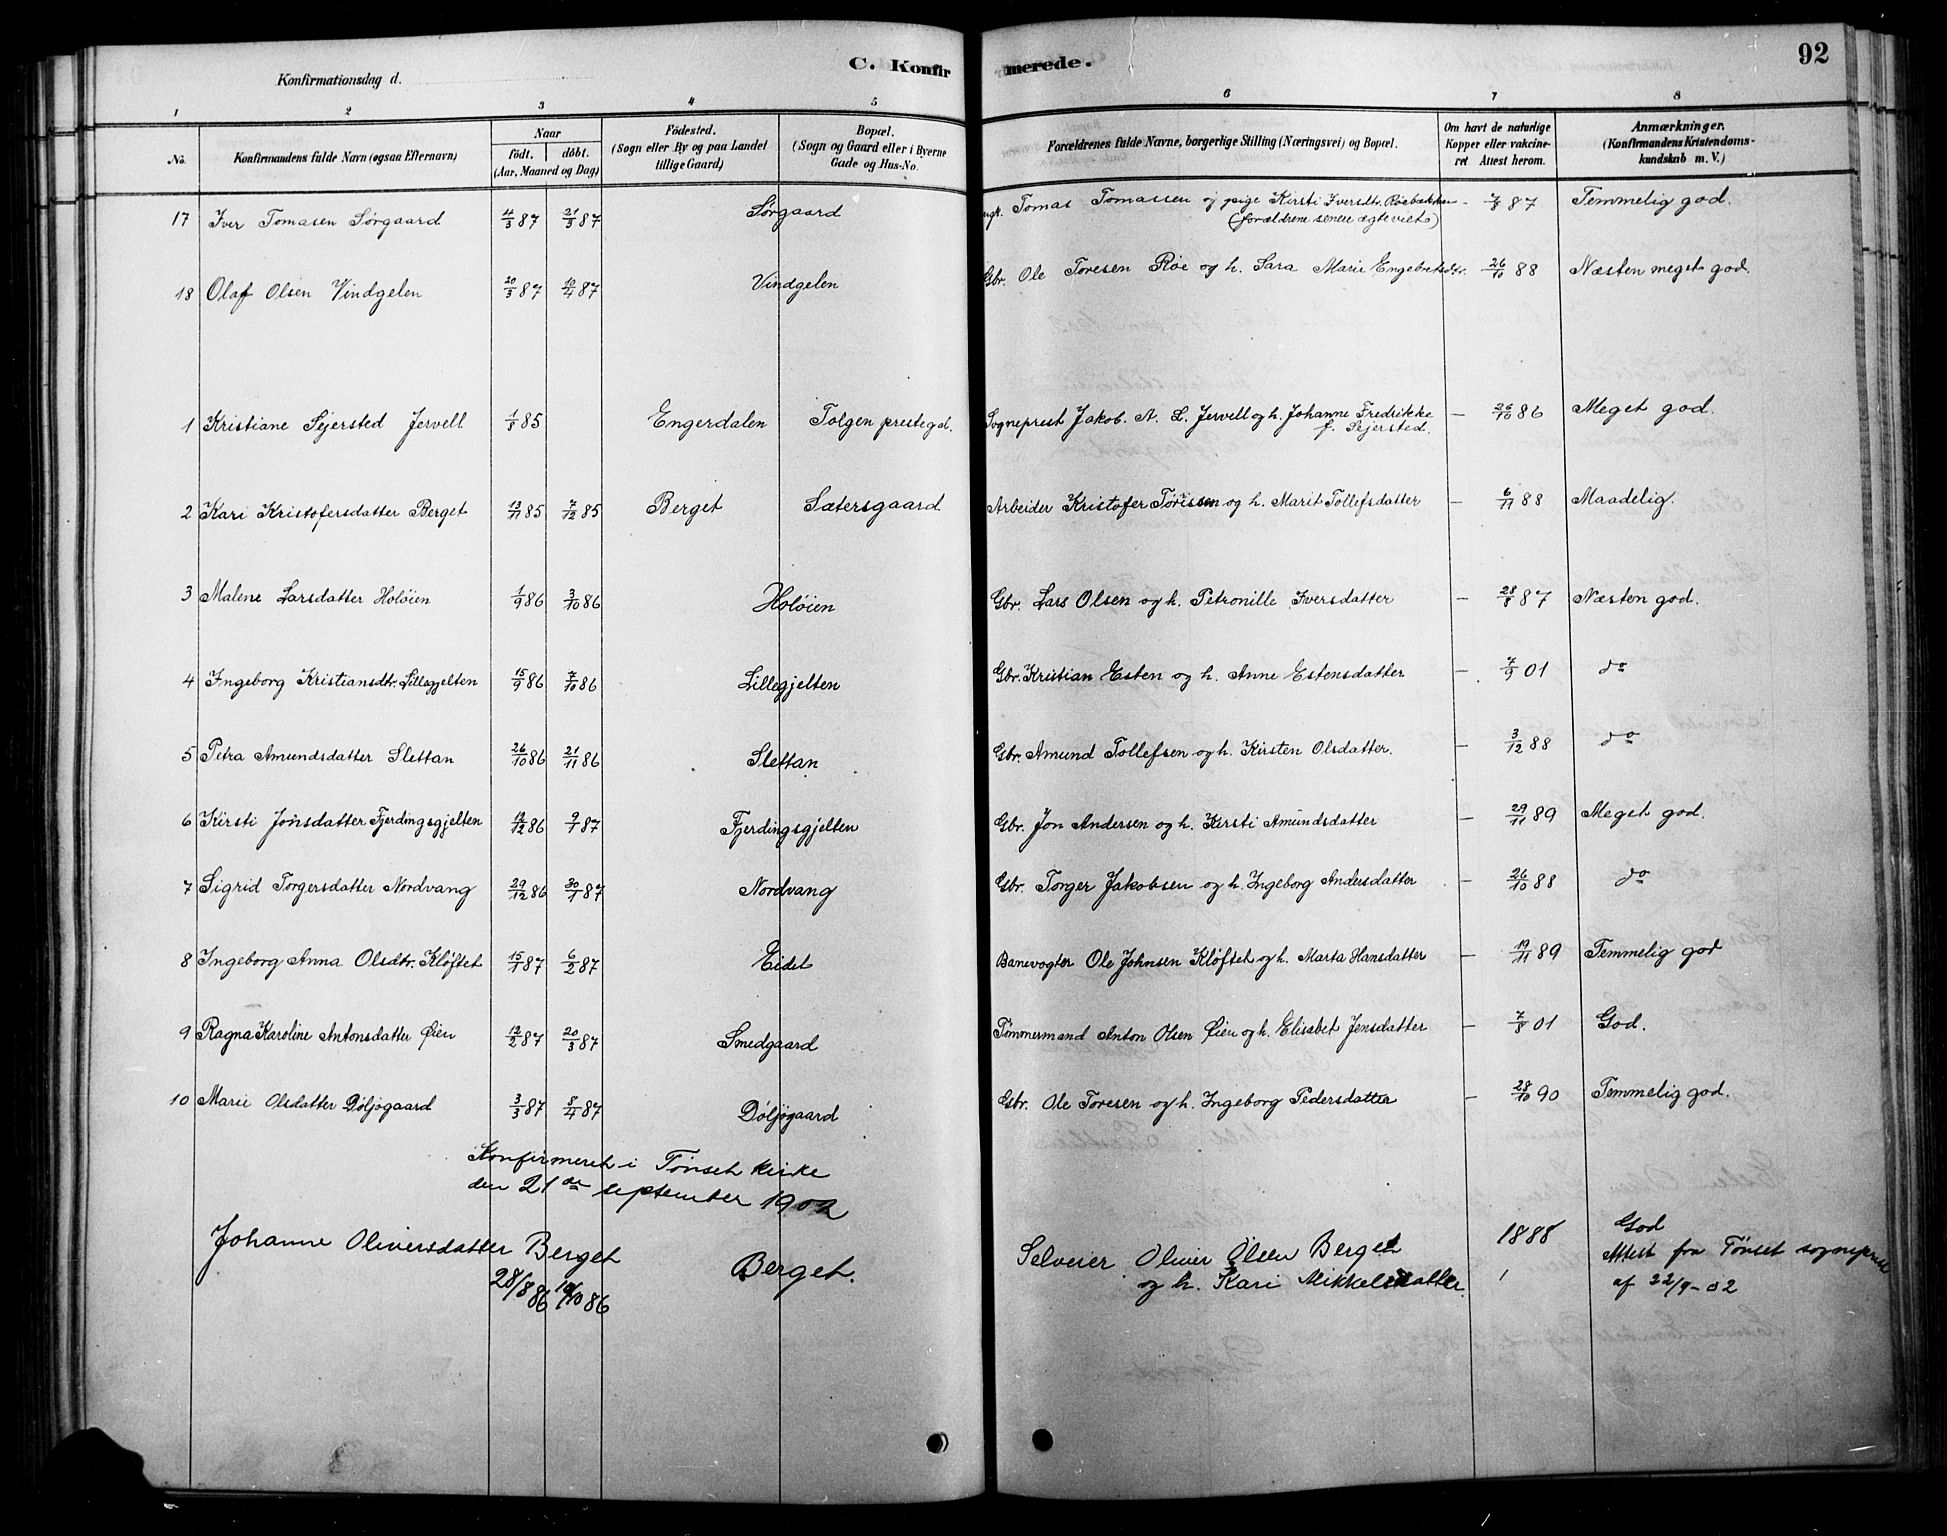 C. Konfirmerede.
92
Konfirmationsdag d.
1 2 3 4 5 6 7 8
No. Konfirmandens fulde Navn (ogsaa Efternavn) Naar födt. döbt. (Aar, Maaned og Dag) Födested. (Sogn eller By og paa Landet tillige Gaard) Bopæl. (Sogn og Gaard eller i Byerne Gade og Hus-No. Forældrenes fulde Navne, borgerlige Stilling (Næringsvei) og Bopæl. Om havt de naturlige Kopper eller vakcineret Attest herom. Anmærkninger. (Konfirmandens Kristendomskundskab m. V.)
17 Iver Tomasen Sørgaard 4/3 87 21/3 87 Sørgaard Tomas Tomassen og pige Kirsti Iversdtr. Röebakken - 87 Temmelig god.
(forældrene senere ægteviet)
18 Olaf Olsen Vindgelen 20/3 87 10/4 87 Vindgelen Gbr. Ole Toresen Röe og h. Sara Marie Engebretsdtr. 26/10 88 Næsten meget god.
1 Kristiane Sejersted Jervell 85 Engerdalen Tolgen prestegd. Sogneprest Jakob. A. L. Jervell og h. Johanne Fredrikke f. Sejersted. - 26/10 86 Meget god.
2 Kari Kristofersdatter Berget 13/11 85 7/12 85 Berget Sætersgaard Arbeider Kristofer Törissen og h. Marit Tollefsdatter - 6/11 88 Maadelig.
3 Malene Larsdatter Holöien 1/9 86 3/10 86 Holöien Gbr. Lars Olsen og h. Petronille Iversdatter - 28/8 87 Næsten god.
4 Ingeborg Kristiansdtr. Lillegjelten 15/9 86 7/10 86 Lillegjelten Gbr. Kristian Esten og h. Anne Estensdatter - 7/9 01 do
5 Petra Amundsdatter Slettan 26/10 86 21/11 86 Slettan Gbr. Amund Tollefsen og h. Kirsten Olsdatter. - 3/12 88 do
6 Kirsti Jonsdatter Fjerdingsgjelten 12/12 86 9/1 87 Fjerdingsgjelten Gbr. Jon Andersen og h. Kirsti Amundsdatter - 29/11 89 Meget god.
7 Sigrid Torgersdatter Nordvang 29/12 86 30/1 87 Nordvang Gbr. Torger Jakobsen og h. Ingeborg Andersdatter - 26/10 88 do
8 Ingeborg Anna Olsdtr. Kløftet 15/1 87 6/2 87 Eidet Banevogter Ole Johnsen Kløftet og h. Marta Hansdatter - 19/11 89 Temmelig god
9 Ragna Karoline Antonsdatter Øien 12/2 87 20/3 87 Smedgaard Tömmermand Anton Olsen Øien og h. Elisabet Jensdatter - 7/8 01 God.
10 Marie Olsdatter Döljøgaard 3/3 87 8/4 87 Döljøgaard Gbr. Ole Toresen og h. Ingeborg Pedersdatter - 28/10 90 Temmelig god.
Konfirmeret i Tönset kirke
den 21de september 1902
Johanne Oliversdatter Berget 28/8 86 10/10 86 Berget. Selveier Oliver Olsen Berget og h. Kari Mikkelsdatter. 1888 God
Attest fra Tönset sogneprest
af 22/9-02